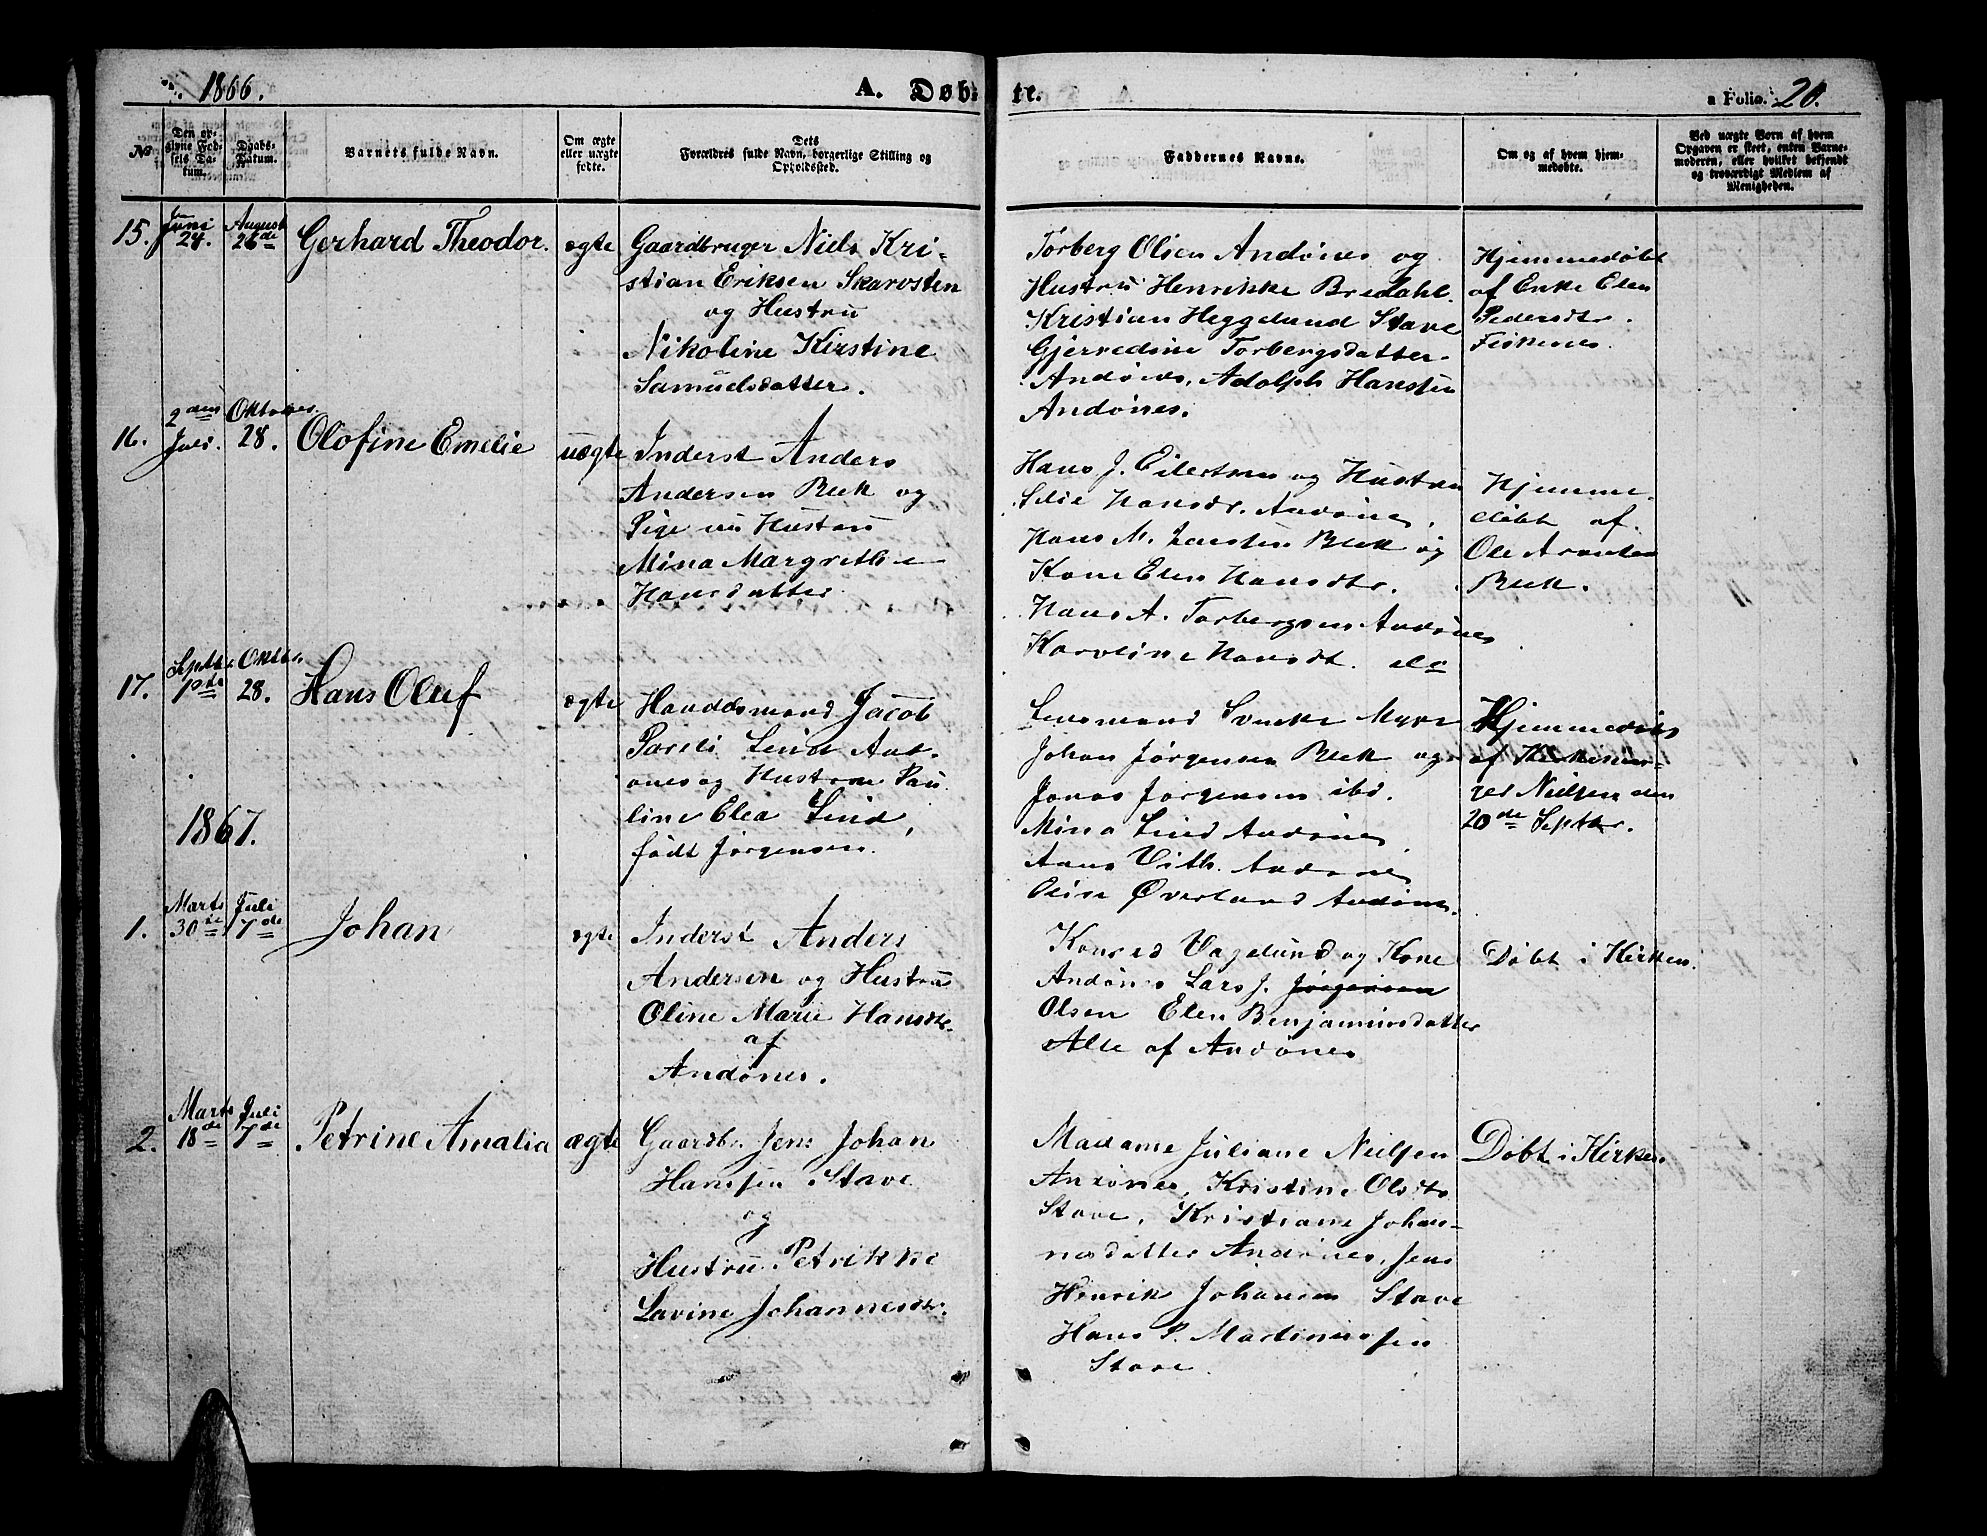 1866.
A. Døb-
te.
a Folio. 20.
No
Den opgivne Fødsels Datum.
Daabs-Datum.
Barnets fulde Navn.
Om ægte eller uægte fødte.
Dets Forældres fulde Navn, borgerlige Stilling og Opholdssted.
Faddernes Navne.
Om og af hvem hjemmedøbte.
Ved uægte Børn af hvem Opgaven er skeet, enten Barnemoderen, eller hvilket bekjendt og troværdigt Medlem af Menigheden.
15.
Juni
24.
August
26de
Gerhard Theodor.
ægte
Gaardbruger Niels Kri-
stian Eriksen Skarvsten
og Hustru
Nikoline Kirstine
Samuelsdatter.
Torberg Olsen Andønes og
Hustru Henrikke Bredahl.
Kristian Heggelund Stave
Gjerredine Torbergsdatter
Andønes, Adolph Hanssen
Andønes.
Hjemmedøbt
af Enke Elen
Pedersdtr.
Fiskenes.
16.
2den
Juli.
Oktober.
28.
Olofine Emelie
uægte
Inderst Anders
Andersen Bleik og
Pige nu Hustru
Mina Margrethe
Hansdatter
Hans J. Eilertsen og Hustru
Hansdr. Andønes.
Hans M. Larsen Bleik og
Kone Elen Hansdtr.
Hans A. Torbergsen Andønes
Karoline Hansdt. do
Hjemme-
døbt af
Ole Arentsen
Bleik.
17.
Septbr.
1ste
Oktbr.
28.
Hans Oluf
ægte
Handelsmand Jacob
Pareli Lind And-
ønes og Hustrue Pau
line Elea Lind,
født Jørgensen.
Lensmand Myre
Johan Jørgensen Bleik og
Jonas Jørgensen ibd.
Mina Lind Andønes
Hans Vith. Andønes
Oline Øverland Andønes.
Hjemmedøbt
af Kirkesan-
ger Nielsen den
20de Septbr.
1867.
1.
Marts
30te
Juli
7de
Johan
ægte
Inderst Anders
Andersen og Hustru
Oline Marie Hansdtr.
af
Andønes.
Konrad Vagelund og Kone
Andønes Lars J. Jørgensen
Olsen Elen Benjaminsdatter
Alle af Andønes
Døbt i Kirken.
2.
Marts
18de
Juli
7de
Petrine Amalia
ægte
Gaardbr. Jens Johan
Hanssen Stave
og
Hustru Petrikke
Lavine Johannesdtr.
Madame Juliane Nielsen
Andønes, Kristine Olsdtr
Stave, Kristiane Johan-
nesdatter Andønes, Jens
Henrik Johansen Stave
Hans P. Martinussen
Stave.
Døbt i Kirken.